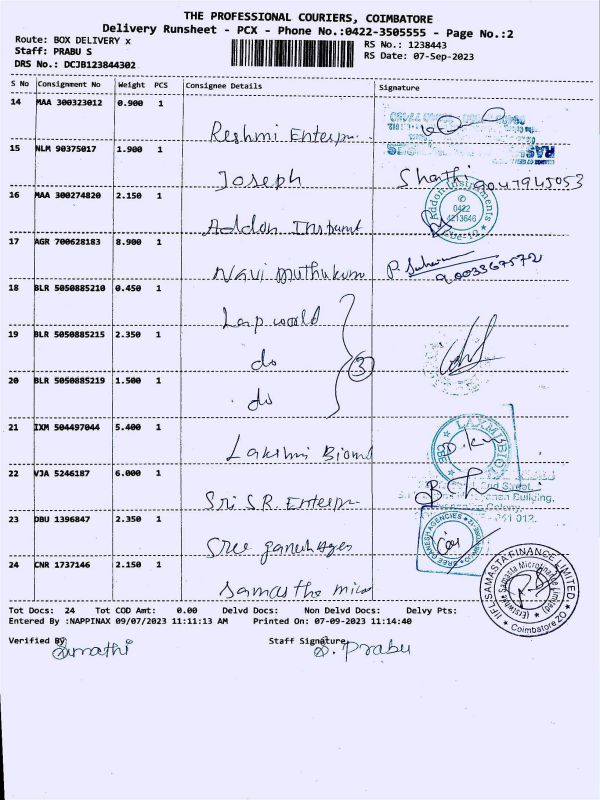 THE PROFESSIONAL COURIERS, COIMBATORE
Delivery Runsheet - PCX - Phone No.:0422-3505555 - Page No.:2
Route: BOX DELIVERY x
RS No.: 1238443
Staff: PRABU S
RS Date: 07-Sep-2023
DRS No.: DCJB123844302
S No Consignment No Weight PCS Consignee Details Signature
14 MAA 300323012 0.900 1
Reshmi Enterpr
15 NLM 90375017 1.900 1
Joseph Shanthi 9047945053
16 MAA 300274820 2.150 1
Addon Instruments
0422
4213646
Addon Instrument
17 AGR 700628183 8.900 1
Navi muthukum P. 9003367572
18 BLR 5050885210 0.450 1
Lap world
19 BLR 5050885215 2.350 1
do 3
20 BLR 5050885219 1.500 1
do
21 IXM 504497044 5.400 1
LAXMI BIO
Lakshmi Biomd
22 VJA 5246187 6.000 1
2nd Street,
Building,
Sri S.R. Enterpr Colony,
641 012.
23 DBU 1396847 2.350 1
SREE GANESH AGENCIES
Sree ganesh Ages
24 CNR 1737146 2.150 1
IIFL SAMASTA FINANCE LIMITED
(Erstwhile Samasta Microfinance Limited)
Coimbatore ZO
Samastha micro
Tot Docs: 24 Tot COD Amt: 0.00 Delvd Docs: Non Delvd Docs: Delvy Pts:
Entered By :NAPPINAX 09/07/2023 11:11:13 AM Printed On: 07-09-2023 11:14:40
Verified By Staff Signature
Sumathi S. Prabu